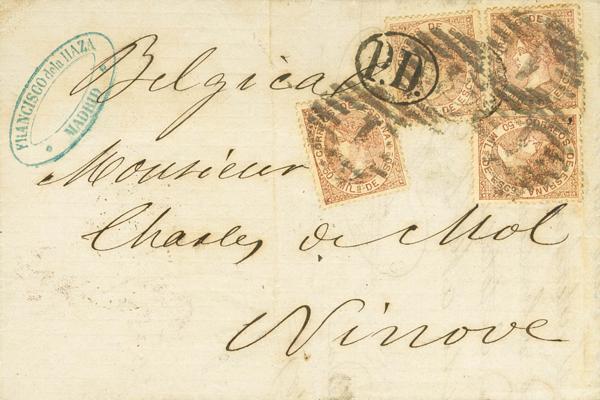 FRANCISCO de la HAZA
MADRID
P.D.
Belgica
Monsieur
Charles de Mol
Ninove
CORREOS DE ESPAÑA
50 MIL.S DE ESC.O